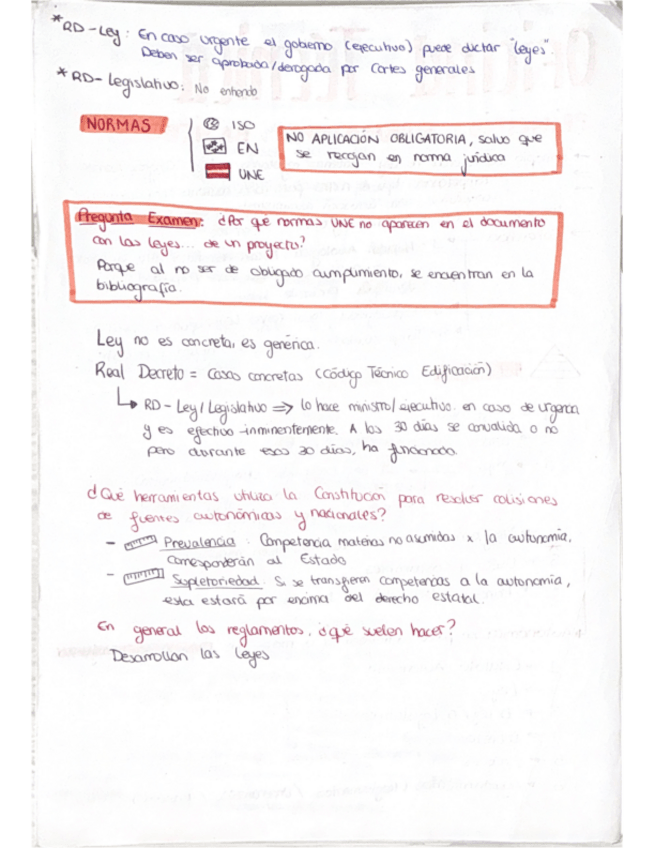 *RD-Ley: En caso urgente el gobierno (ejecutivo) puede dictar "leyes".
Deben ser aprobada/derogada por Cortes generales
*RD-legislativo: No entendo
NORMAS
ISO
EN
UNE
NO APLICACIÓN OBLIGATORIA, salvo que
se recojan en norma jurídica
Pregunta Examen: ¿Por qué normas UNE no aparecen en el documento
con las leyes... de un proyecto?
Porque al no ser de obligado cumplimiento, se encuentran en la
bibliografía.
Ley no es concreta, es genérica.
Real Decreto = Casos concretos (Código Técnico Edificación)
↳ RD-Ley/Legislativo => lo hace ministro/ejecutivo en caso de urgencia
y es efectivo inminentemente. A los 30 días se convalida o no
pero durante esos 30 días, ha funcionado.
¿Qué herramientas utiliza la Constitución para resolver colisiones
de fuentes autonómicas y nacionales?
- Prevalencia: Competencia materias no asumidas x la autonomía,
corresponderán al Estado
- Supletoriedad: Si se transfieren competencias a la autonomía,
esta estará por encima del derecho estatal.
En general los reglamentos, ¿qué suelen hacer?
Desarrollan las leyes